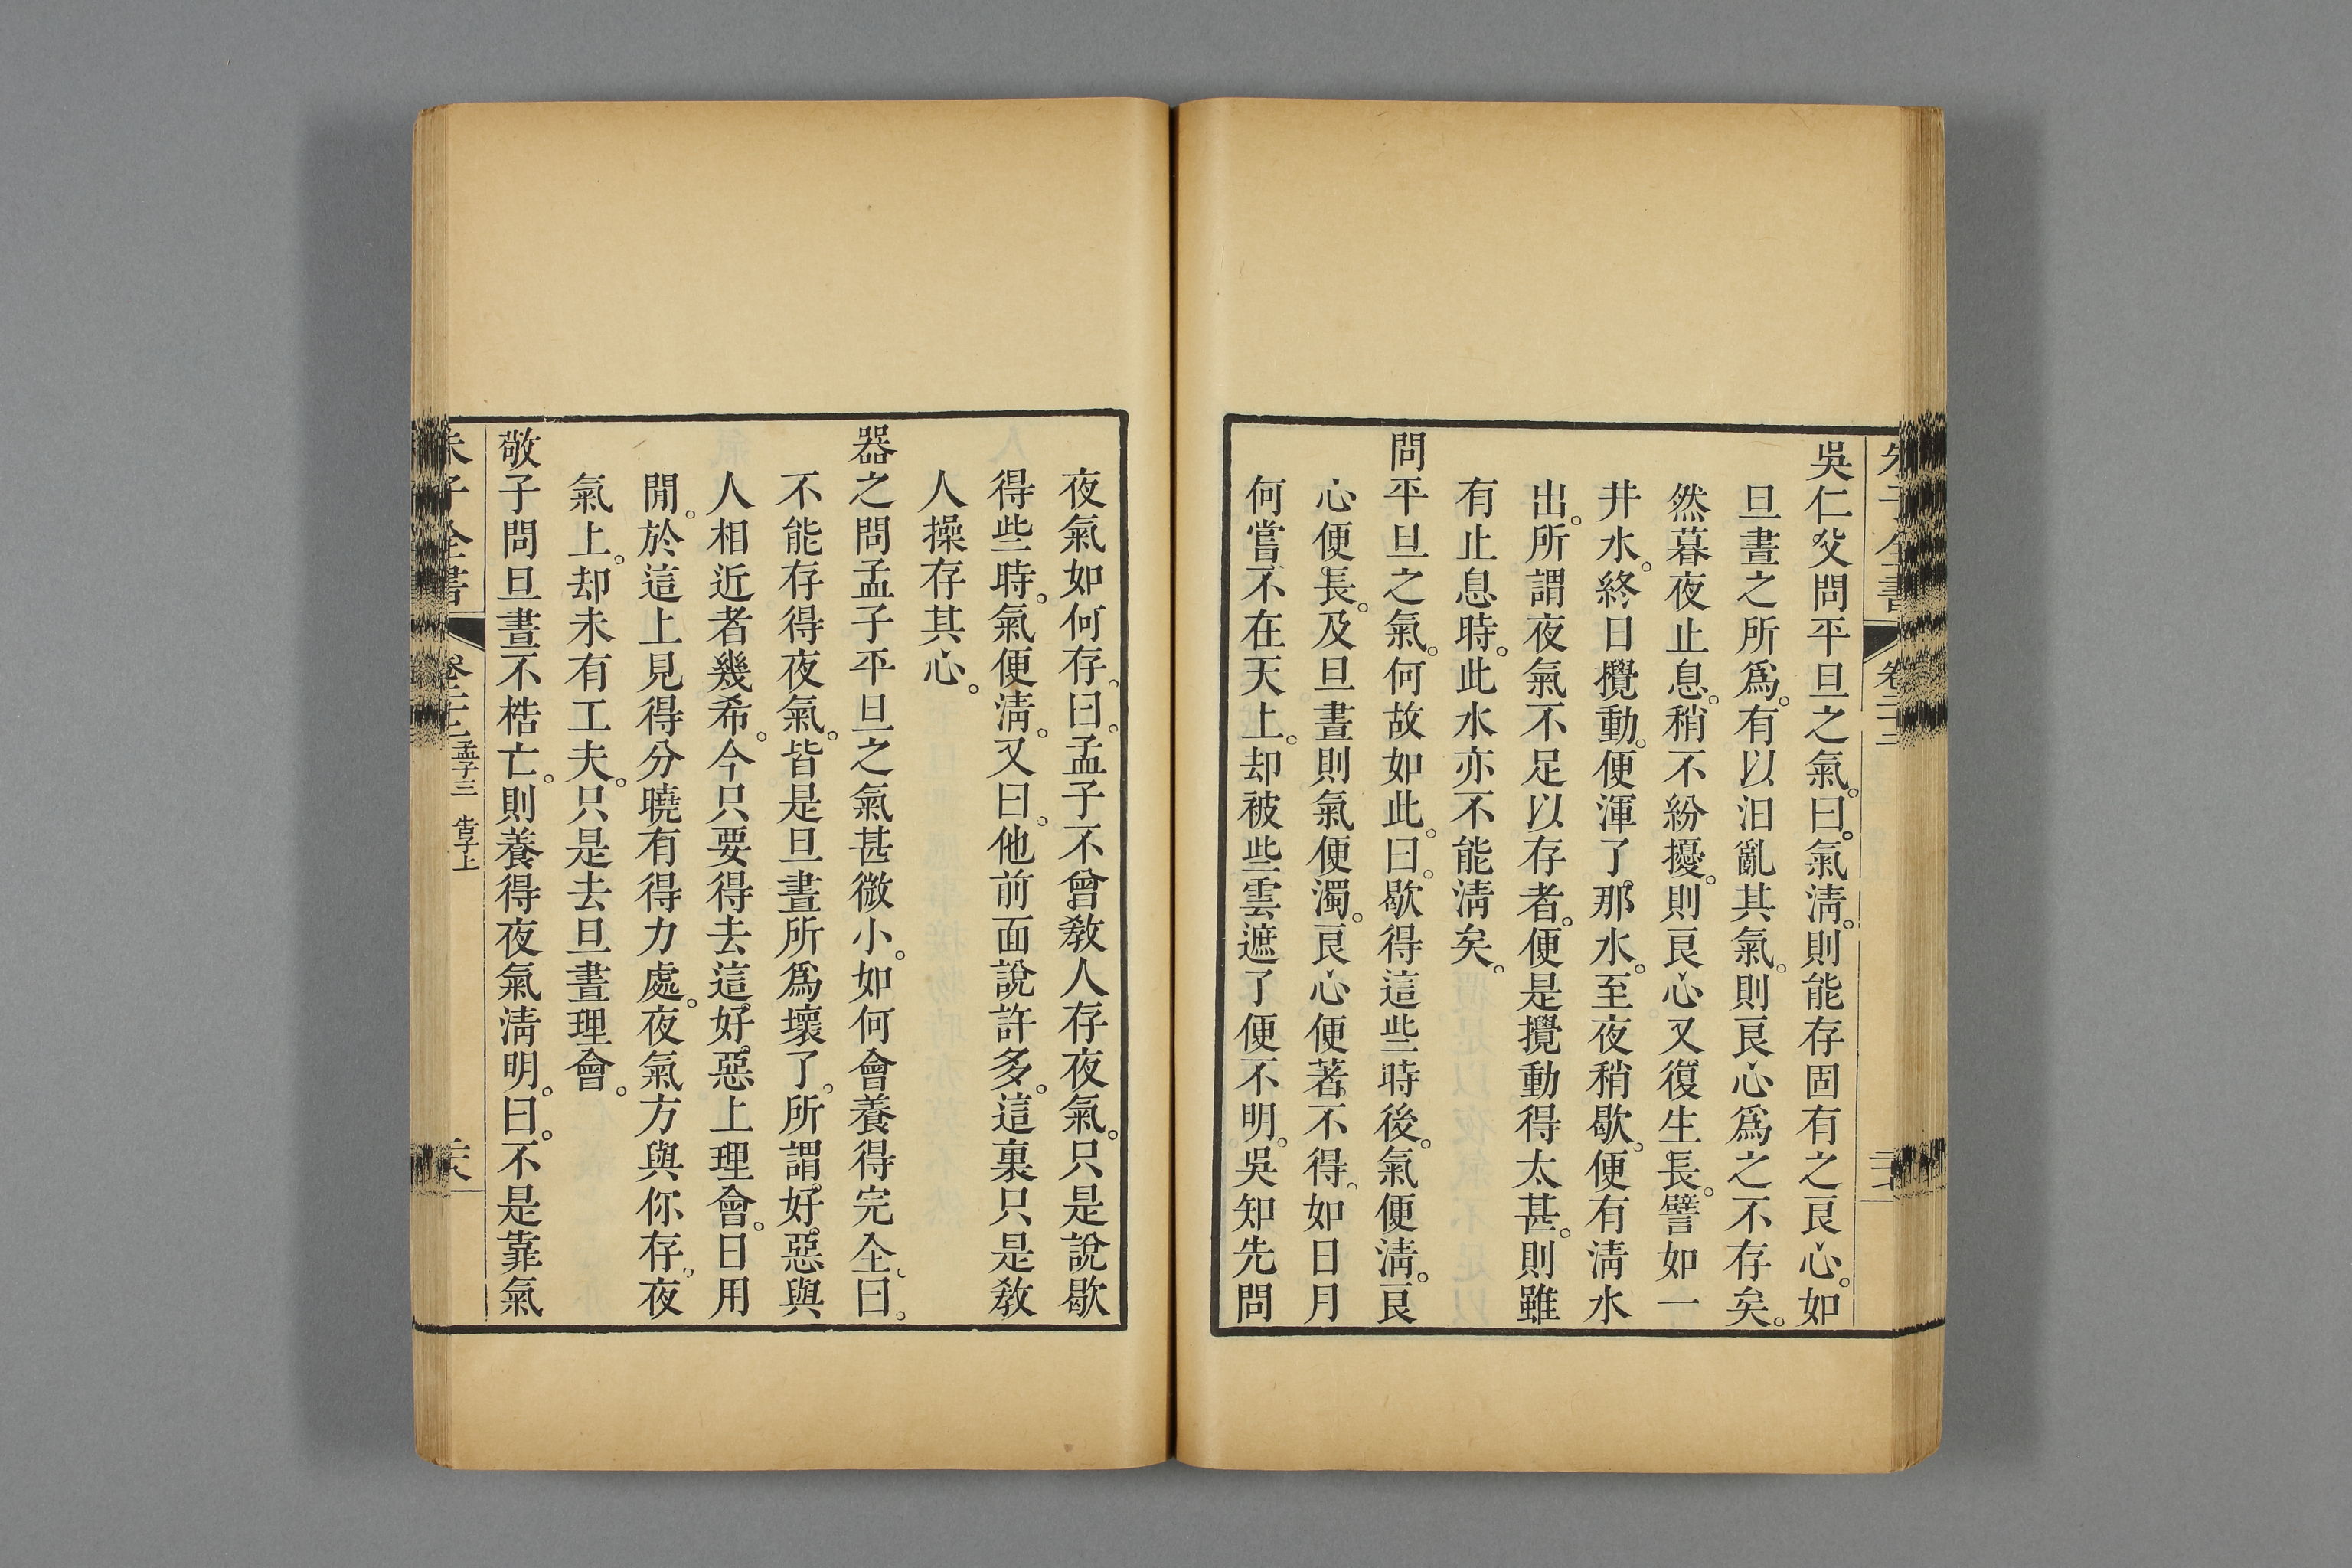 吳仁父問平旦之氣。曰。氣淸。則能存固有之良心。如
旦晝之所爲。有以汩亂其氣。則良心爲之不存矣。
然暮夜止息。稍不紛擾。則良心又復生長。譬如一
井水。終日攪動。便渾了。那水。至夜稍歇。便有淸水
出。所謂夜氣不足以存者。便是攪動得太甚。則雖
有止息時。此水亦不能淸矣。
問平旦之氣。何故如此。曰。歇得這些時後。氣便淸。良
心便長。及旦晝則氣便濁。良心便著不得。如日月
何嘗不在天上。却被些雲遮了便不明。吳知先問
夜氣如何存。曰。孟子不曾教人存夜氣。只是說歇
得些時。氣便淸。又曰。他前面說許多。這裏只是教
人操存其心。
器之問孟子平旦之氣甚微小。如何會養得完全。曰。
不能存得夜氣。皆是旦晝所爲壞了。所謂好惡與
人相近者幾希。今只要得去這好惡上理會。日用
閒。於這上見得分曉有得力處。夜氣方與你存。夜
氣上。却未有工夫。只是去旦晝理會。
敬子問旦晝不梏亡。則養得夜氣淸明。曰。不是靠氣
朱子全書
孟子三 告子上